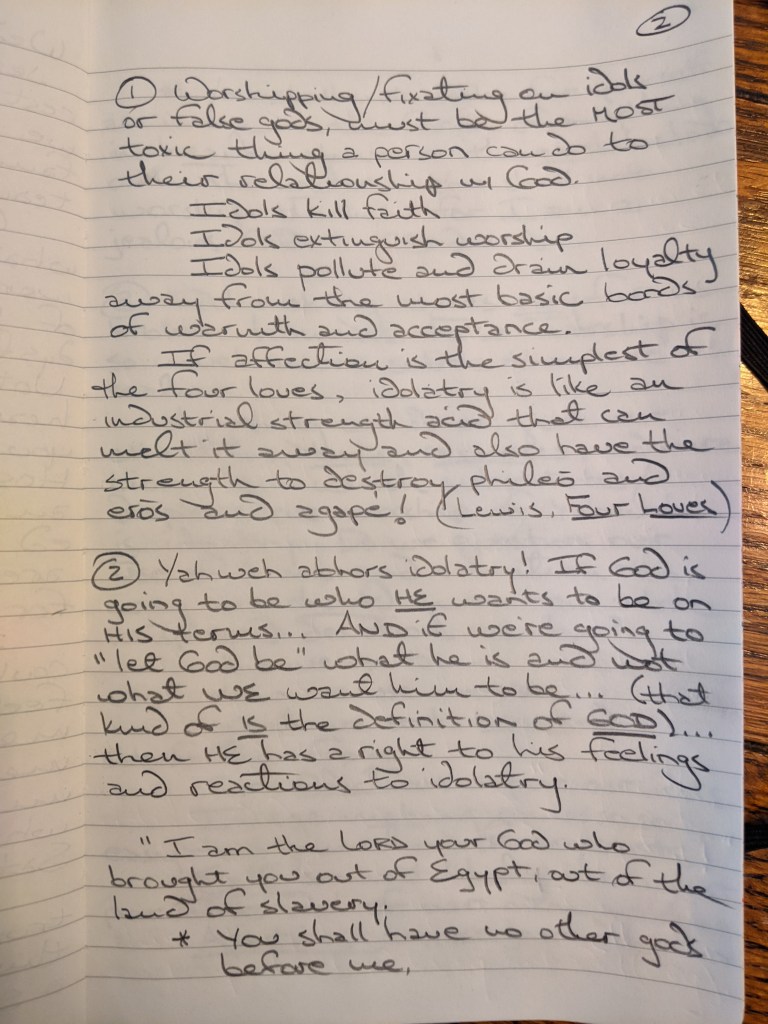 ②
① Worshipping/fixating on idols
or false gods, must be the MOST
toxic thing a person can do to
their relationship w/ God.
Idols kill faith
Idols extinguish worship
Idols pollute and drain loyalty
away from the most basic bonds
of warmth and acceptance.
If affection is the simplest of
the four loves, idolatry is like an
industrial strength acid that can
melt it away and also have the
strength to destroy phileō and
erōs and agapē! (Lewis, Four Loves)
② Yahweh abhors idolatry! If God is
going to be who HE wants to be on
HIS terms... AND if we're going to
"let God be" what he is and not
what WE want him to be... (that
kind of IS the definition of GOD)...
then HE has a right to his feelings
and reactions to idolatry.
"I am the LORD your God who
brought you out of Egypt, out of the
land of slavery.
* You shall have no other gods
before me,